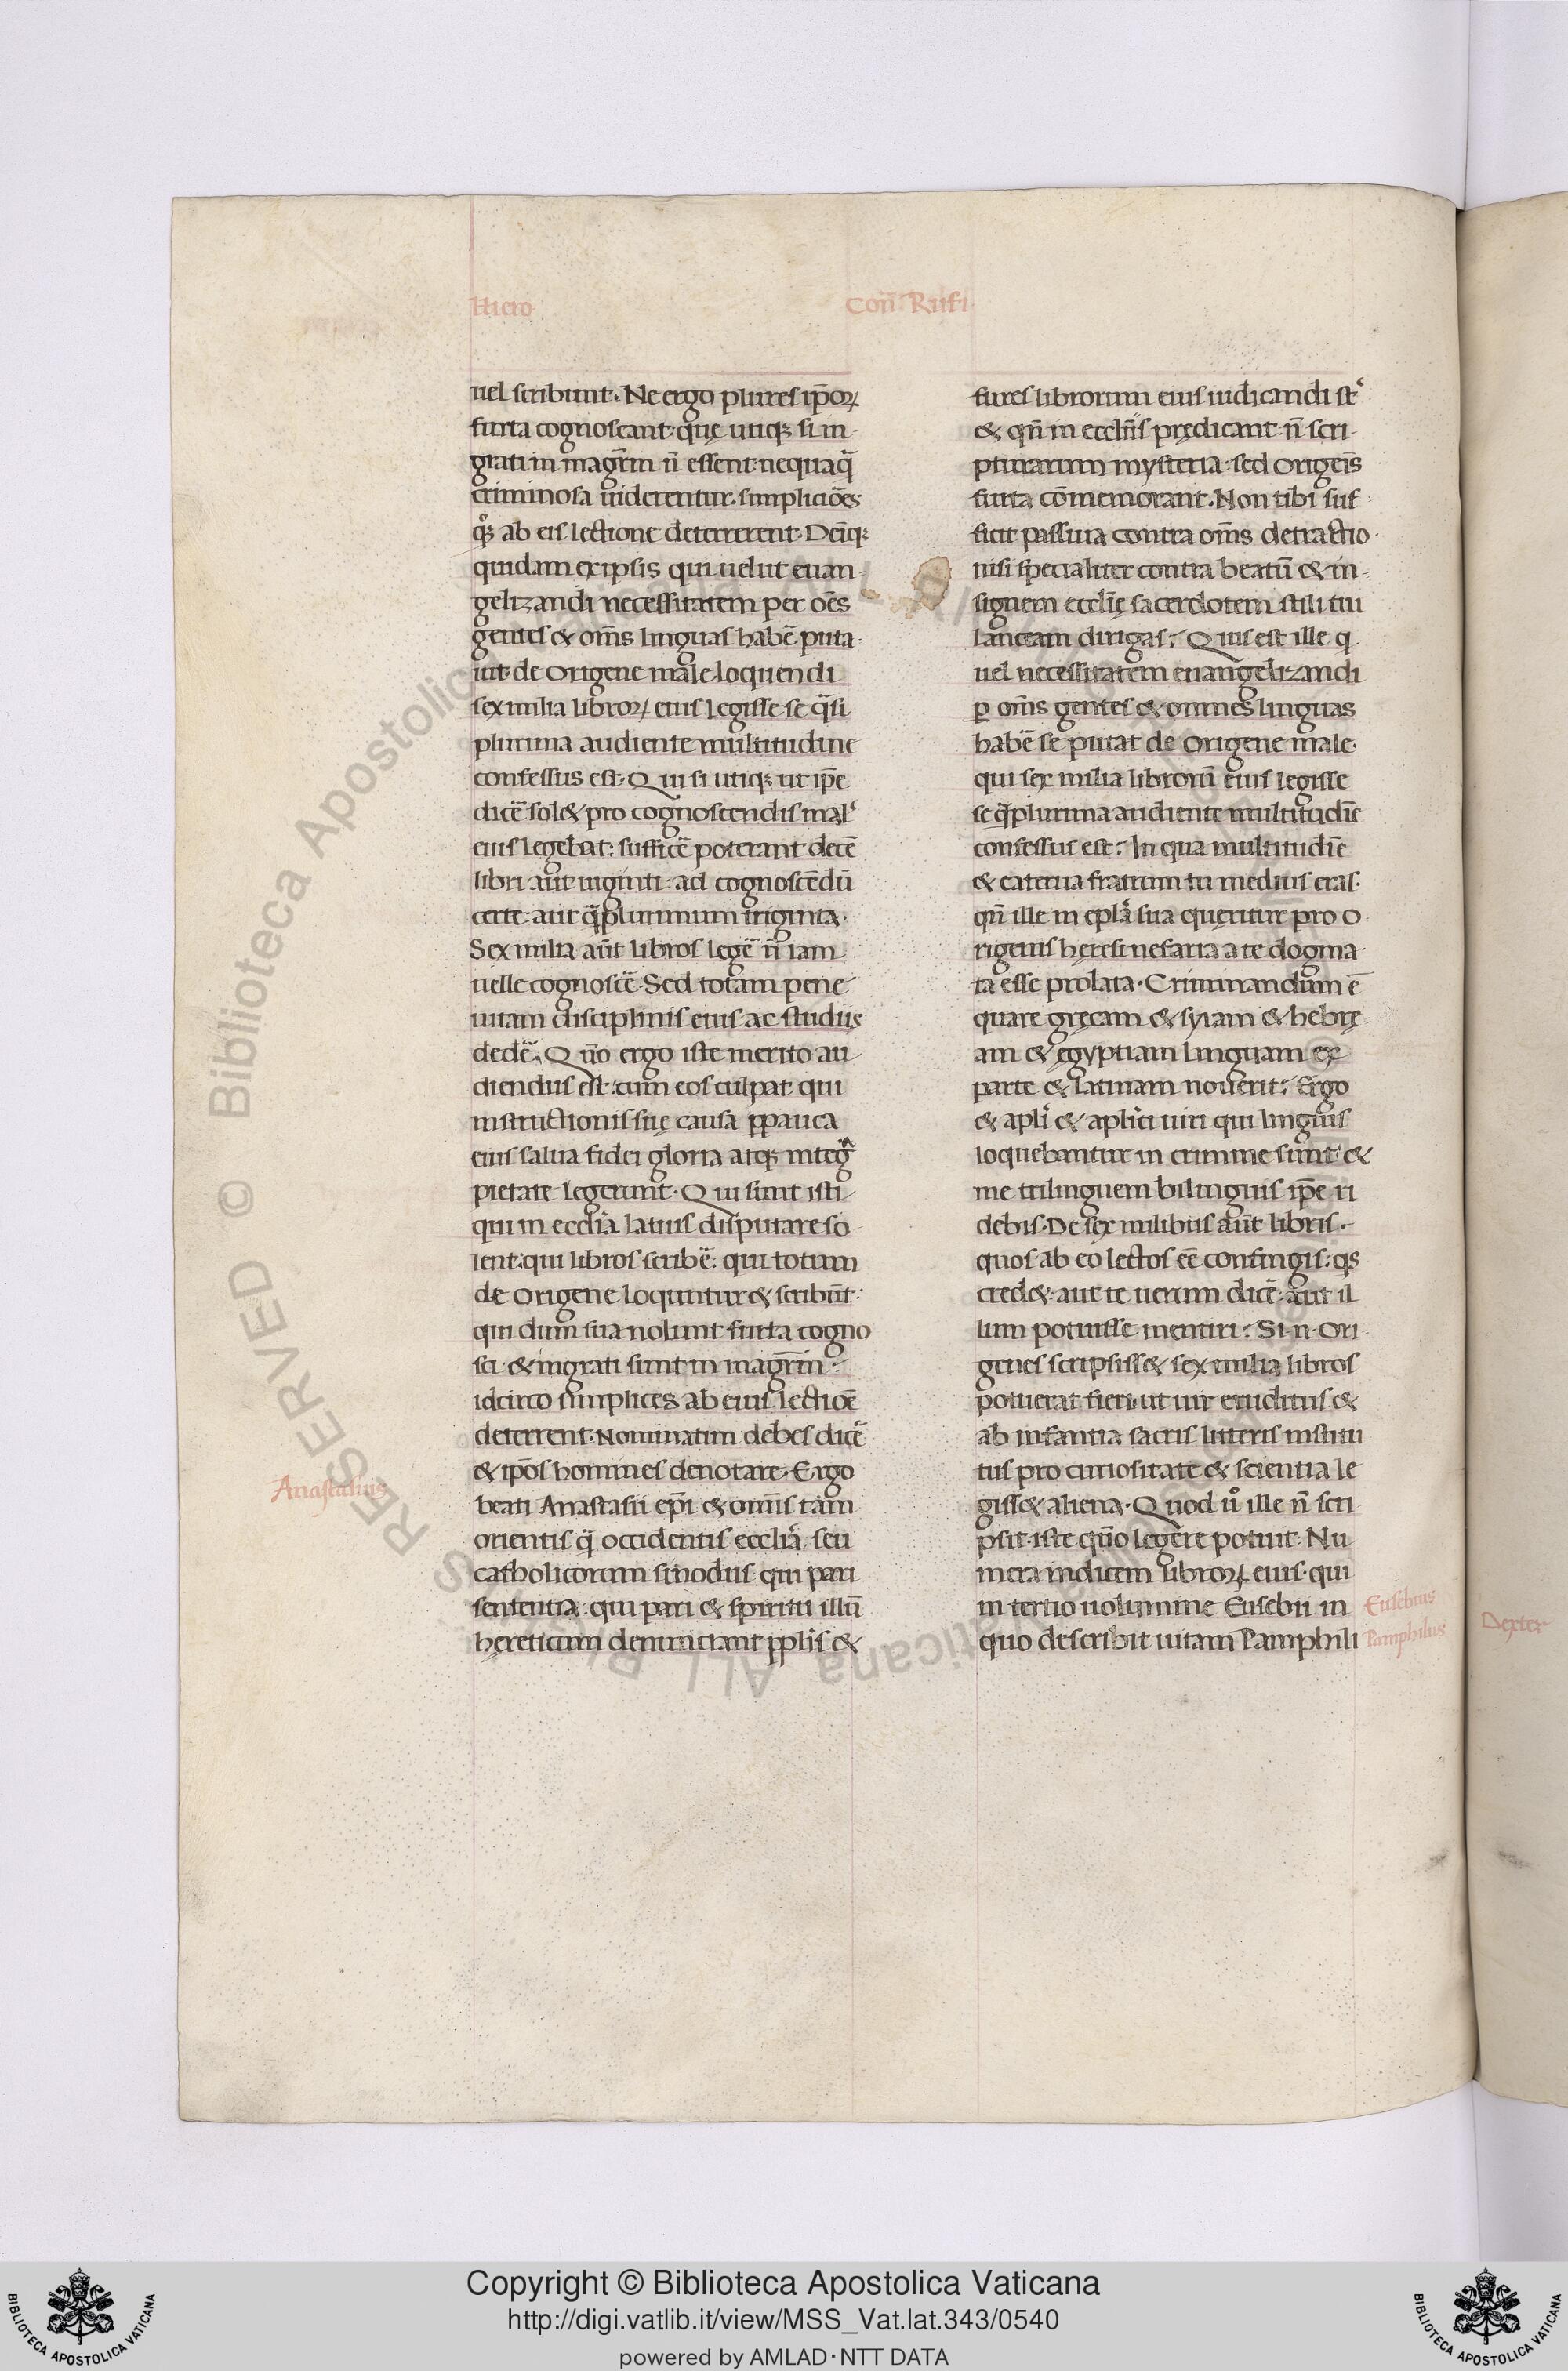 Hiero
Con̄. Rufi.
uel scribunt. Ne ergo plures ip̄oꝝ
furta cognoscant: quę utiqꝫ si in
grati in magr̄m n̄ essent: nequaq̄
criminosa uiderentur. simpliciōes
ab eis lectione deterrerent. Deīqꝫ
quidam ex ipsis qui uelut euan
gelizandi necessitatem per oēs
gentes & om̄s linguas habē puta
uit. de Origene male loquendi
sex milia libroꝝ eius legisse se q̄si
plurima audiente multitudine
confessus est. Qui si utiqꝫ ut ip̄e
dicē sol& pro cognoscendis mal'
eius legebat: sufficē poterant decē
libri aut uiginti: ad cognoscēdū
certe: aut q̄plurimum triginta.
Sex milia aūt libros legē n̄ iam
uelle cognoscē. Sed totam pene
uitam disciplinis eius ac studiis
dedē. Quō ergo iste merito au
diendus est. cum eos culpat qui
instructionis suę causa ꝑpauca
eius salua fidei gloria atqꝫ integ̃
pietate legerunt. Qui sunt isti
qui in eccl̄ia latius disputare so
lent: qui libros scribē: qui totum
de Origene loquntur & scribūt:
qui dum sua nolunt furta cogno
sci & ingrati sunt in magr̄m:
idcirco simplices ab eius lectiōe
deterrent. Nominatim debes dicē
& ip̄os homines denotare. Ergo
beati Anastasii ep̄i & omnis tam
orientis q̄ occidentis eccl̄ia seu
catholicorum sinodus qui pari
sententia: qui pari & spiritu illū
hęreticum denunciant ꝑpl̄is &
Anastasius
fures librorum eius iudicandi st'
& qn̄ in eccl̄iis prędicant n̄ scri
pturarum mysteria: sed Origeīs
furta cōmemorant. Non tibi suf
ficit passiua contra om̄s detractio
nisi specialiter contra beatū & in
signem eccl̄ię sacerdotem stili tui
lanceam dirigas: Quis est ille q
uel necessitatem euangelizandi
ꝑ om̄s gentes & omnes linguas
habē se putat de Origene male.
qui sex milia librorū eius legisse
se q̄plurima audiente multitudīe
confessus est: In qua multitudīe
& caterua fratrum tu medius eras.
qn̄ ille in epl̄a sua quęritur pro O
rigenis hęresi nefaria a te dogma
ta esse prolata. Criminandum ē
quare gręcam & syram & hebrę
am & ęgyptiam linguam ex
parte & latinam nouerit: Ergo
& apl̄i & apl̄ici uiri qui linguis
loquebantur in crimine sunt & 
me trilinguem bilinguis ip̄e ri
debis. De sex milibus aūt libris.
quos ab eo lectos eē confingis: qs
cred&: aut te uerum dicē: aut il
lum potuisse mentiri: Si n̄ Ori
genes scripsiss& sex milia libros
potuerat fieri ut uir eruditus &
ab infantia sacris litteris institu
tus pro curiositate & scientia le
giss& aliena. Quod ů ille n̄ scri
psit. iste quō legere potuit. Nu
mera indicem libroꝝ eius. qui
in tertio uolumine Eusebii in
quo describit uitam Pamphili
Eusebius
Pamphilus
Dexter
© Biblioteca Apostolica Vaticana ALL RIGHTS RESERVED
Copyright © Biblioteca Apostolica Vaticana
http://digi.vatlib.it/view/MSS_Vat.lat.343/0540
powered by AMLAD·NTT DATA
BIBLIOTECA APOSTOLICA VATICANA
BIBLIOTECA APOSTOLICA VATICANA